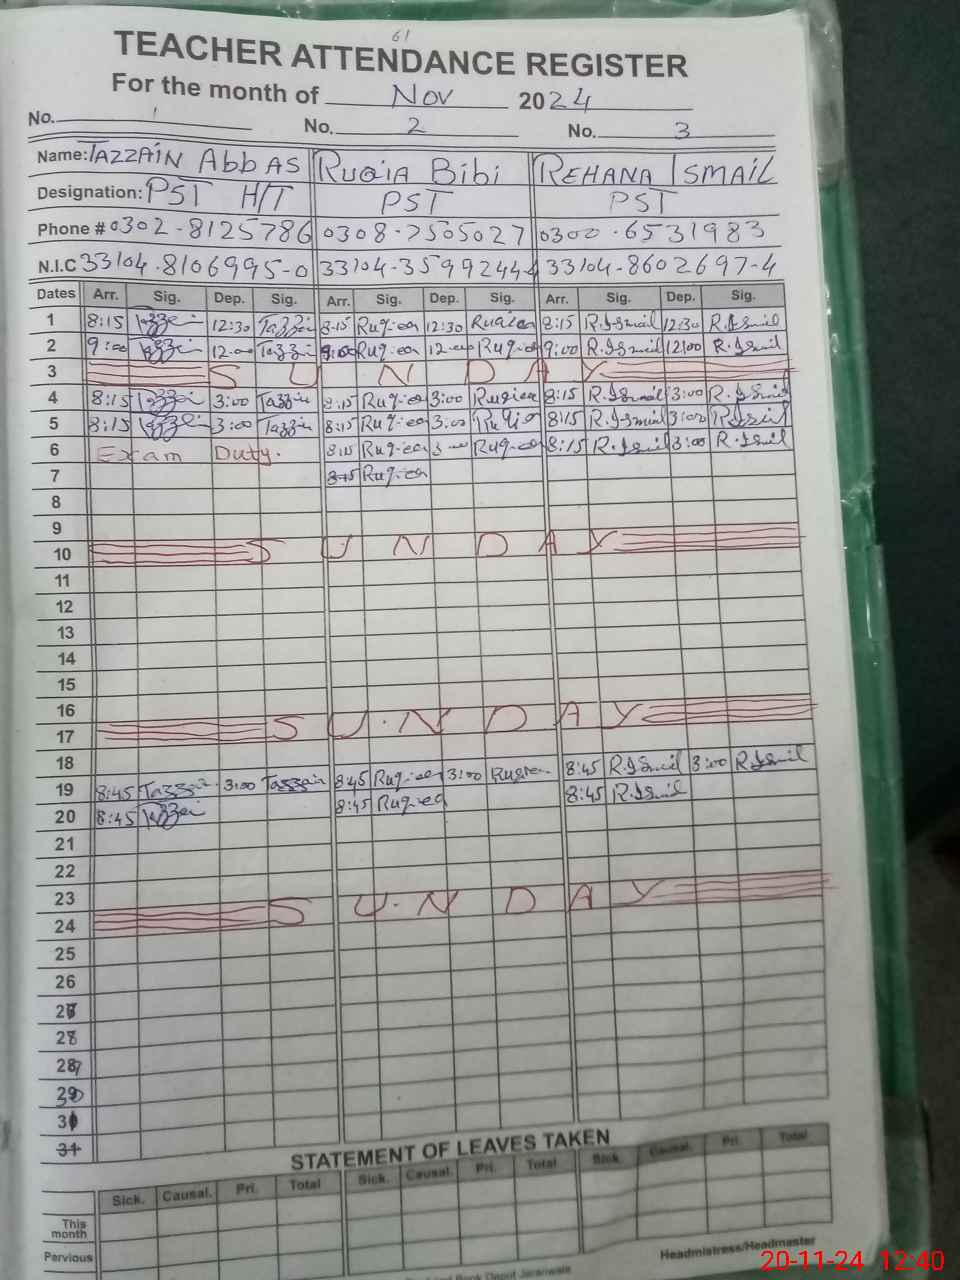 61
TEACHER ATTENDANCE REGISTER
For the month of Nov 2024
No. 1 No. 2 No. 3
Name: TAZZAIN ABBAS RUQIA BIBI REHANA ISMAIL
Designation: PST H/T PST PST
Phone # 0302-8125786 0308-7505027 0300-6531983
N.I.C 33104-8106995-0 33104-3599244-4 33104-8602697-4
Dates Arr. Sig. Dep. Sig. Arr. Sig. Dep. Sig. Arr. Sig. Dep. Sig.
1 8:15 Tazzain 12:30 Tazzain 8:15 Ruqiea 12:30 Ruqiea 8:15 R.Ismail 12:30 R.Ismail
2 9:00 Tazzain 12:00 Tazzain 9:00 Ruqiea 12:00 Ruqiea 9:00 R.Ismail 12:00 R.Ismail
3 SUNDAY
4 8:15 Tazzain 3:00 Tazzain 8:15 Ruqiea 3:00 Ruqiea 8:15 R.Ismail 3:00 R.Ismail
5 8:15 Tazzain 3:00 Tazzain 8:15 Ruqiea 3:00 Ruqiea 8:15 R.Ismail 3:00 R.Ismail
6 Exam Duty. 8:15 Ruqiea 3:00 Ruqiea 8:15 R.Ismail 3:00 R.Ismail
7 8:15 Ruqiea
8
9
10 SUNDAY
11
12
13
14
15
16
17 SUNDAY
18
19 8:45 Tazzain 3:00 Tazzain 8:45 Ruqiea 3:00 Ruqiea 8:45 R.Ismail 3:00 R.Ismail
20 8:45 Tazzain 8:45 Ruqiea 8:45 R.Ismail
21
22
23
24 SUNDAY
25
26
27
28
29
30
31
STATEMENT OF LEAVES TAKEN
Sick. Causal. Pri. Total Sick. Causal. Pri. Total Sick. Causal. Pri. Total
This month
Pervious
Headmistress/Headmaster
Book Depot Jaranwala
20-11-24 12:40